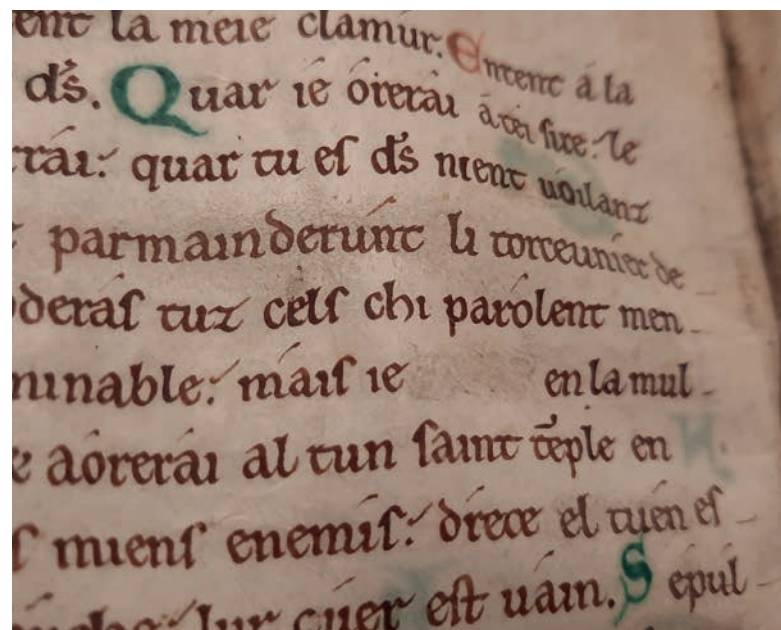 ent la meie clamur. Entent á la
ds̄. Quar ié óterái á téi sire. le
rái: quar tu es ds̄ nient uoilanz
parmainderunt li torceunier de
deras tuz céls chi parólent men
minable: mais ie en la mul
aórerái al tun saint tēple en
s miens enemis: drece el tuén es
lur cúer est uáin. Sepul